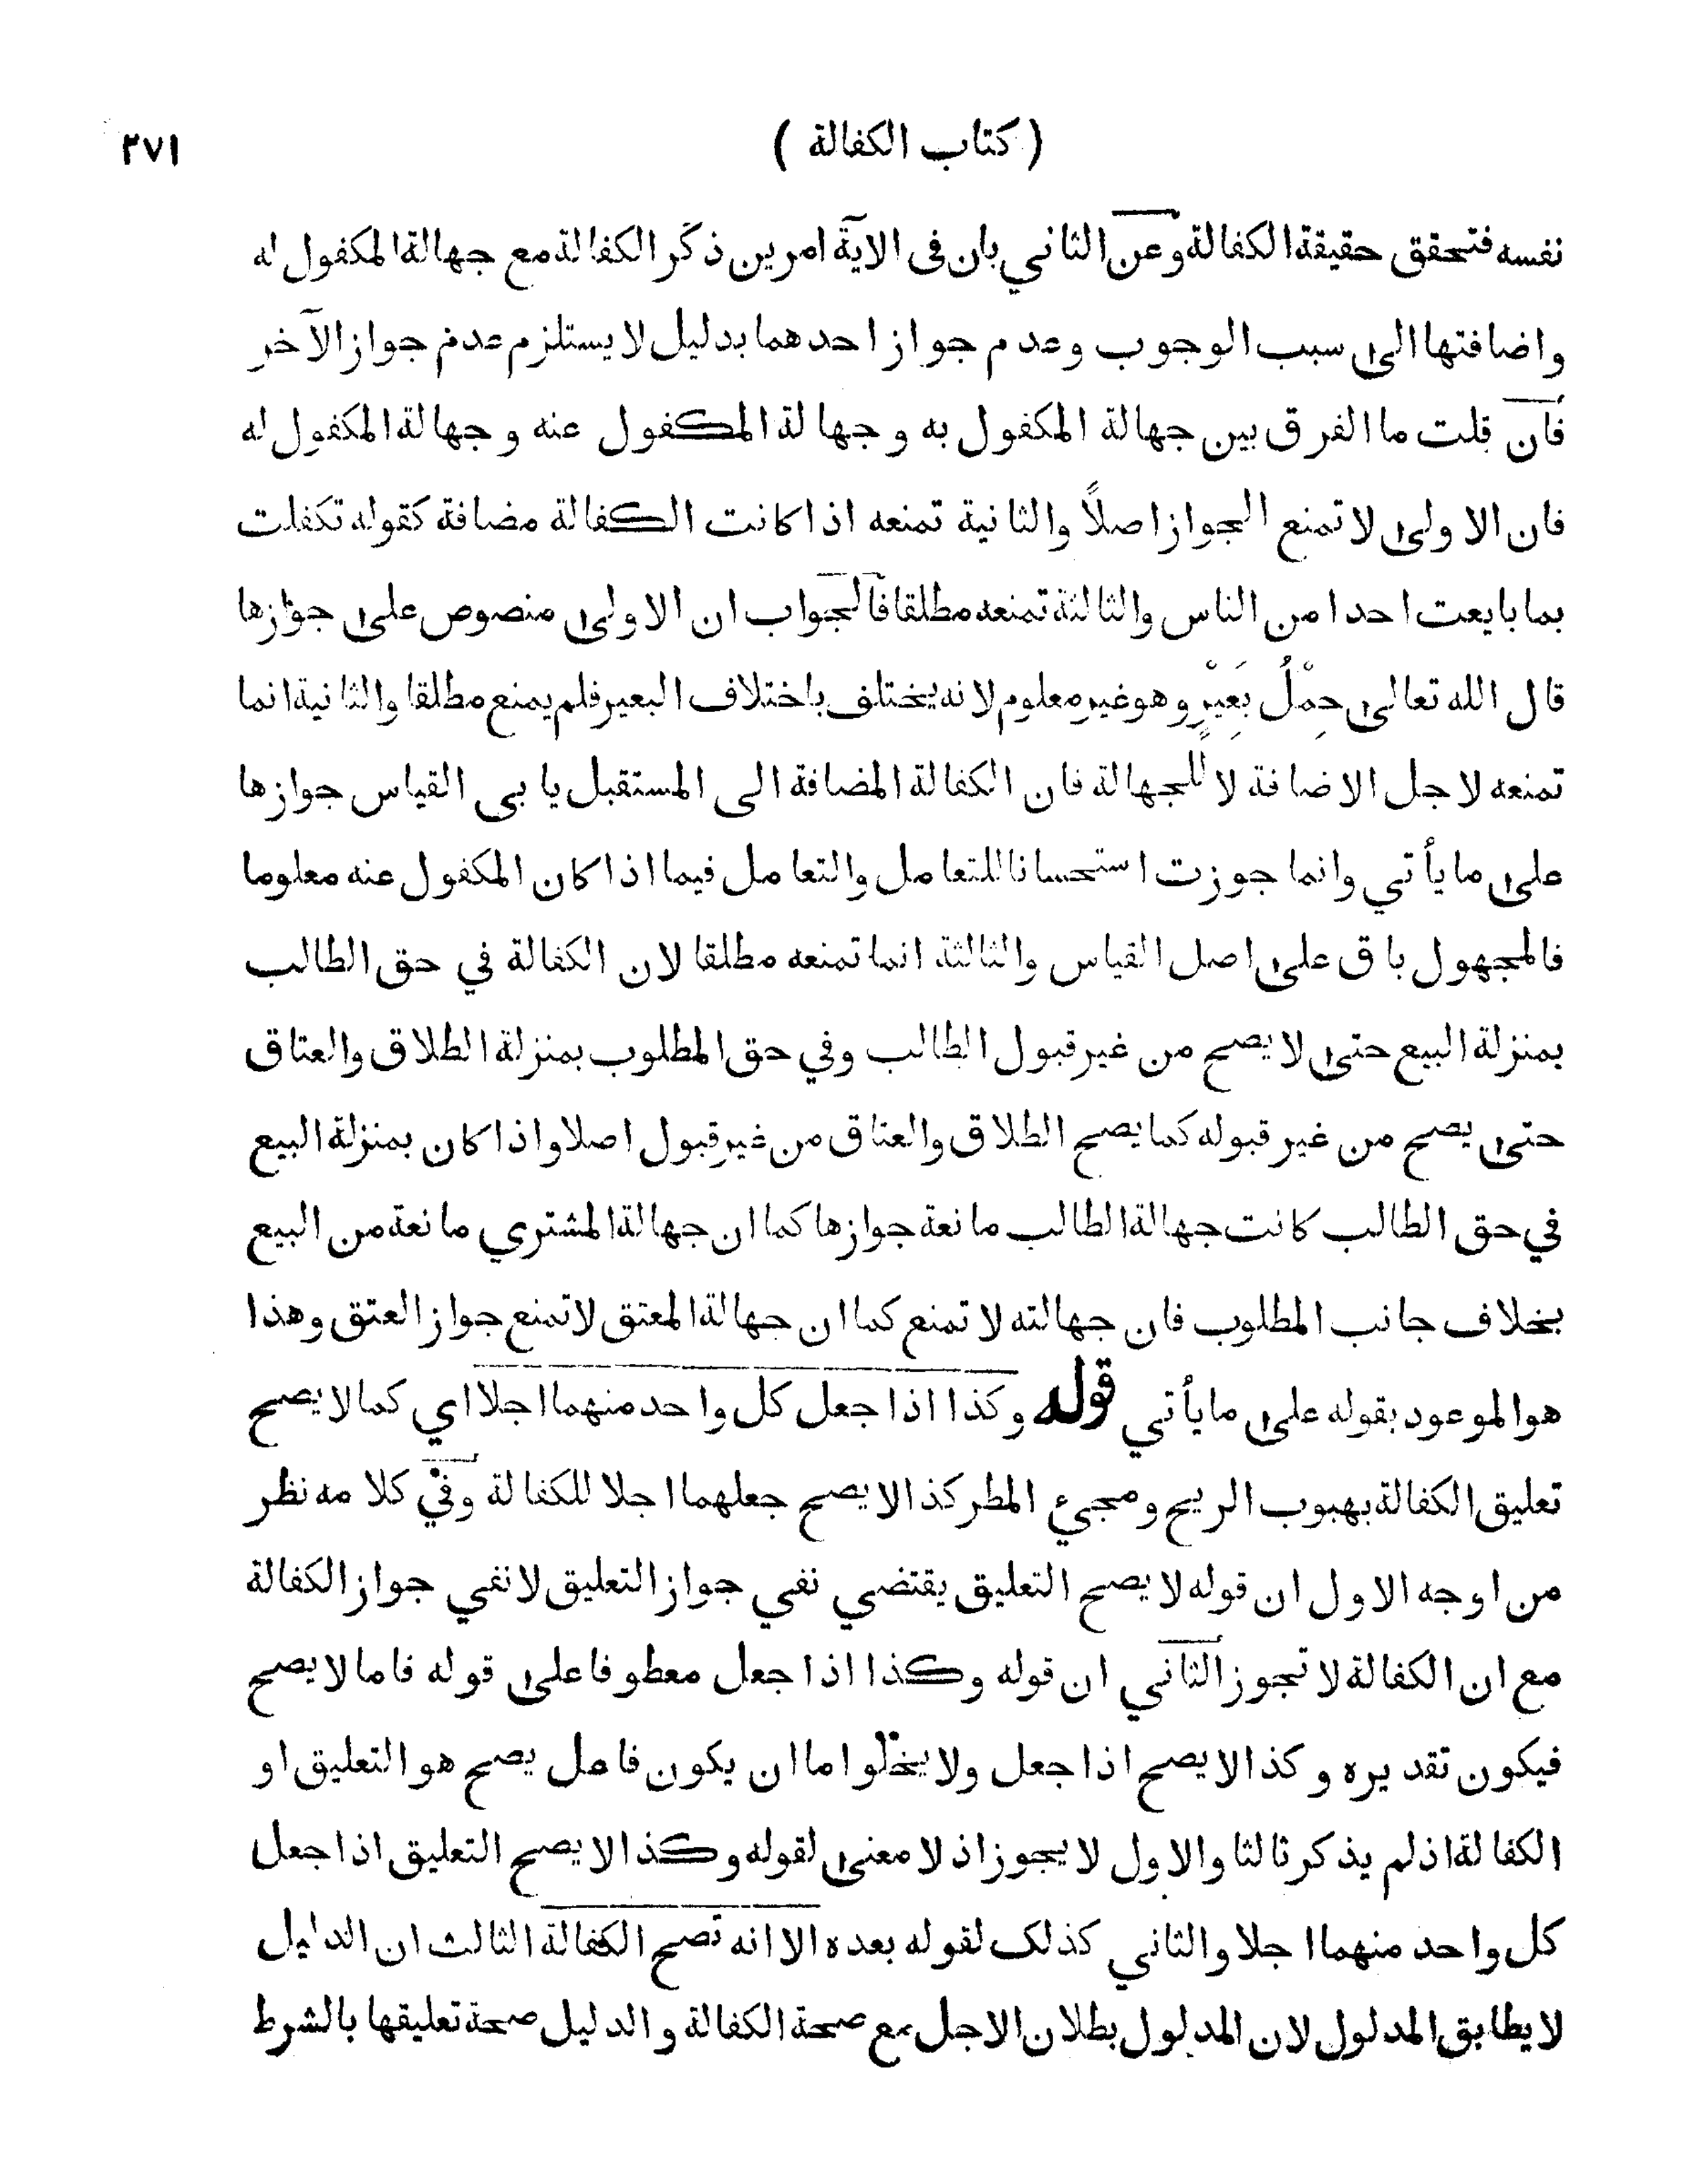 ( كتاب الكفالة )
٢٧١
نفسه فتحقق حقيقة الكفالة وعن الثاني بان فى الاية امرين ذكر الكفالة مع جهالة المكفول له
واضافتها الى سبب الوجوب وعدم جواز احدهما بدليل لا يستلزم عدم جواز الآخر
فان قلت ما الفرق بين جهالة المكفول به وجهالة المكفول عنه وجهالة المكفول له
فان الاولى لا تمنع الجواز اصلاً والثانية تمنعه اذا كانت الكفالة مضافة كقوله تكفلت
بما بايعت احدا من الناس والثالثة تمنعه مطلقا فالجواب ان الاولى منصوص على جوازها
قال الله تعالى حِمْلُ بَعِيْرٍ وهو غير معلوم لانه يختلف باختلاف البعير فلم يمنع مطلقا والثانية انما
تمنعه لاجل الاضافة لا للجهالة فان الكفالة المضافة الى المستقبل يابى القياس جوازها
على ما يأتي وانما جوزت استحسانا للتعامل والتعامل فيما اذا كان المكفول عنه معلوما
فالمجهول باق على اصل القياس والثالثة انما تمنعه مطلقا لان الكفالة في حق الطالب
بمنزلة البيع حتى لا يصح من غير قبول الطالب وفي حق المطلوب بمنزلة الطلاق والعتاق
حتى يصح من غير قبوله كما يصح الطلاق والعتاق من غير قبول اصلا واذا كان بمنزلة البيع
في حق الطالب كانت جهالة الطالب مانعة جوازها كما ان جهالة المشتري مانعة من البيع
بخلاف جانب المطلوب فان جهالته لا تمنع كما ان جهالة المعتق لا تمنع جواز العتق وهذا
هو الموعود بقوله على ما يأتي قوله وكذا اذا جعل كل واحد منهما اجلا اي كما لا يصح
تعليق الكفالة بهبوب الريح ومجيء المطر كذا لا يصح جعلهما اجلا للكفالة وفي كلامه نظر
من اوجه الاول ان قوله لا يصح التعليق يقتضي نفي جواز التعليق لا نفي جواز الكفالة
مع ان الكفالة لا تجوز الثاني ان قوله وكذا اذا جعل معطوفا على قوله فاما لا يصح
فيكون تقديره وكذا لا يصح اذا جعل ولا يخلوا اما ان يكون فاعل يصح هو التعليق او
الكفالة اذ لم يذكر ثالثا والاول لا يجوز اذ لا معنى لقوله وكذا لا يصح التعليق اذا جعل
كل واحد منهما اجلا والثاني كذلك لقوله بعده الا انه تصح الكفالة الثالث ان الدليل
لا يطابق المدلول لان المدلول بطلان الاجل مع صحة الكفالة والدليل صحة تعليقها بالشرط